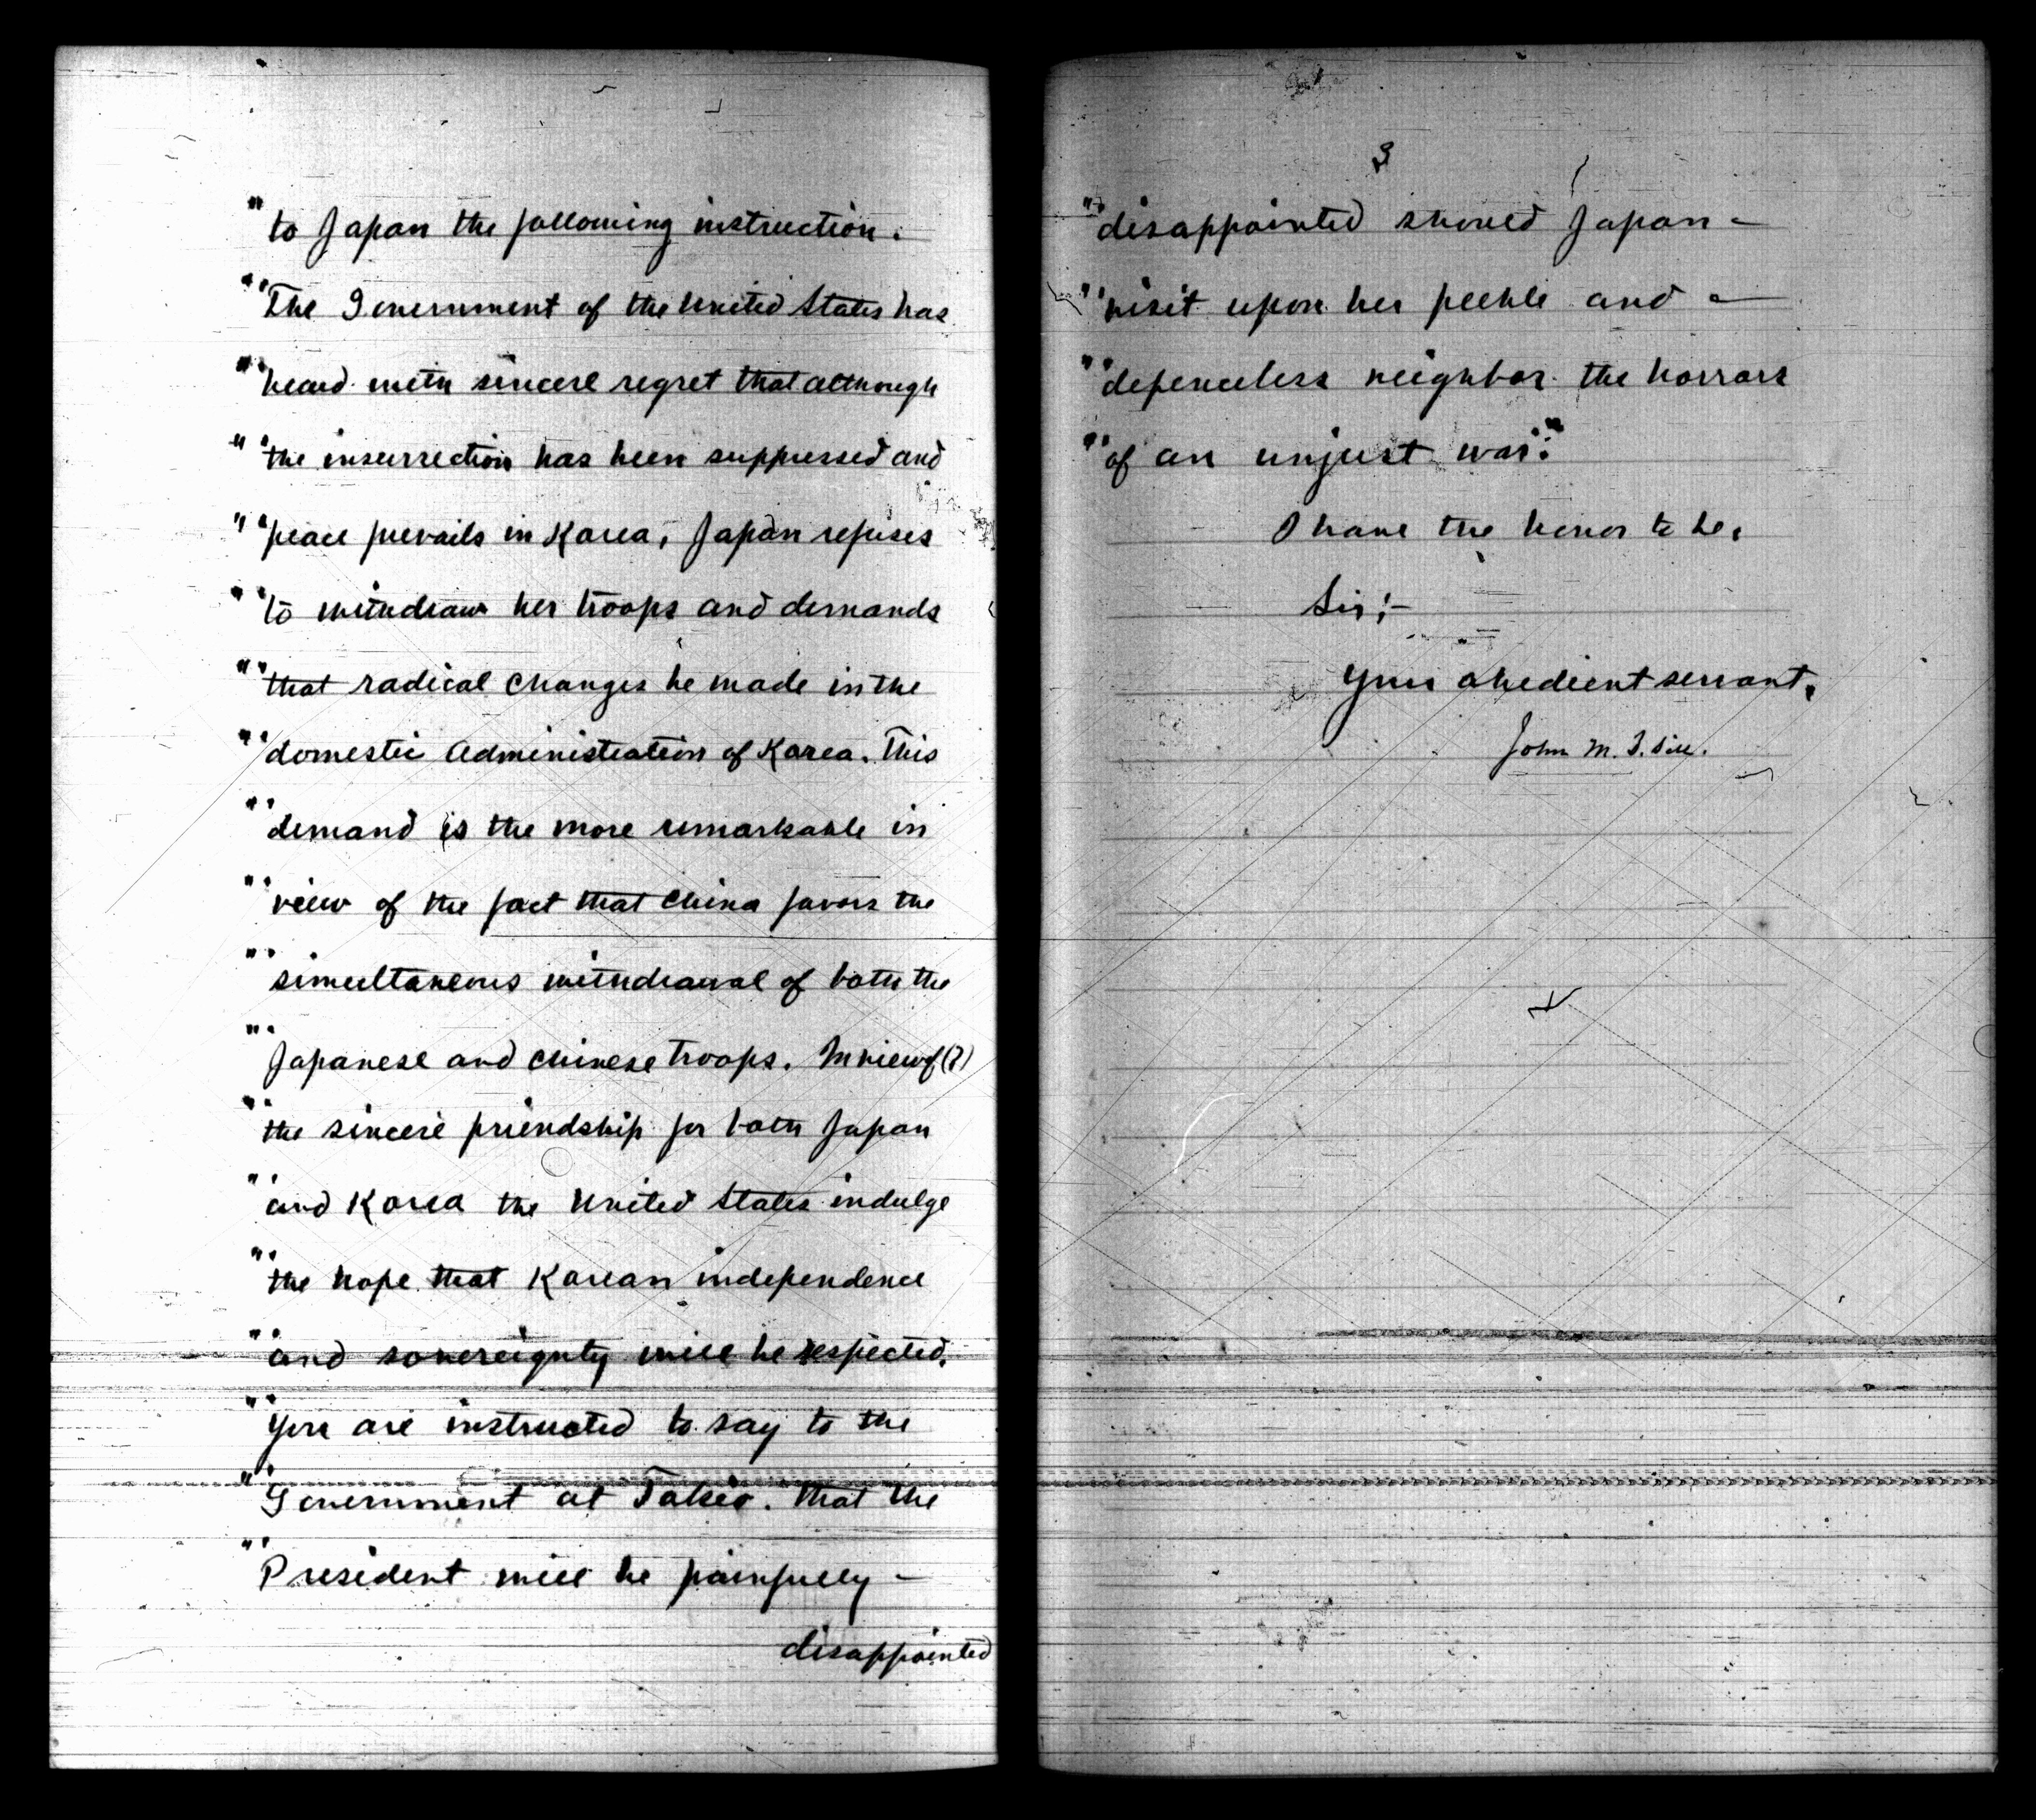 " to Japan the following instruction.
" 'The Government of the United States has
" 'heard with sincere regret that although
" 'the insurrection has been suppressed and
" 'peace prevails in Korea, Japan refuses
" 'to withdraw her troops and demands
" 'that radical changes be made in the
" 'domestic administration of Korea. This
" 'demand is the more remarkable in
" 'view of the fact that China favors the
" 'simultaneous withdrawal of both the
" 'Japanese and Chinese troops. In view of (?)
" 'the sincere friendship for both Japan
" 'and Korea the United States indulge
" 'the hope that Korean independence
" 'and sovereignty will be respected.
" 'You are instructed to say to the
" 'Government at Tokio. that the
" 'President will be painfully –
disappointed
3
" 'disappointed should Japan –
" 'visit upon her feeble and –
" 'defenceless neighbor the horrors
" 'of an unjust war'."
I have the honor to be,
Sir;–
Your obedient servant,
John M. B. Sill.